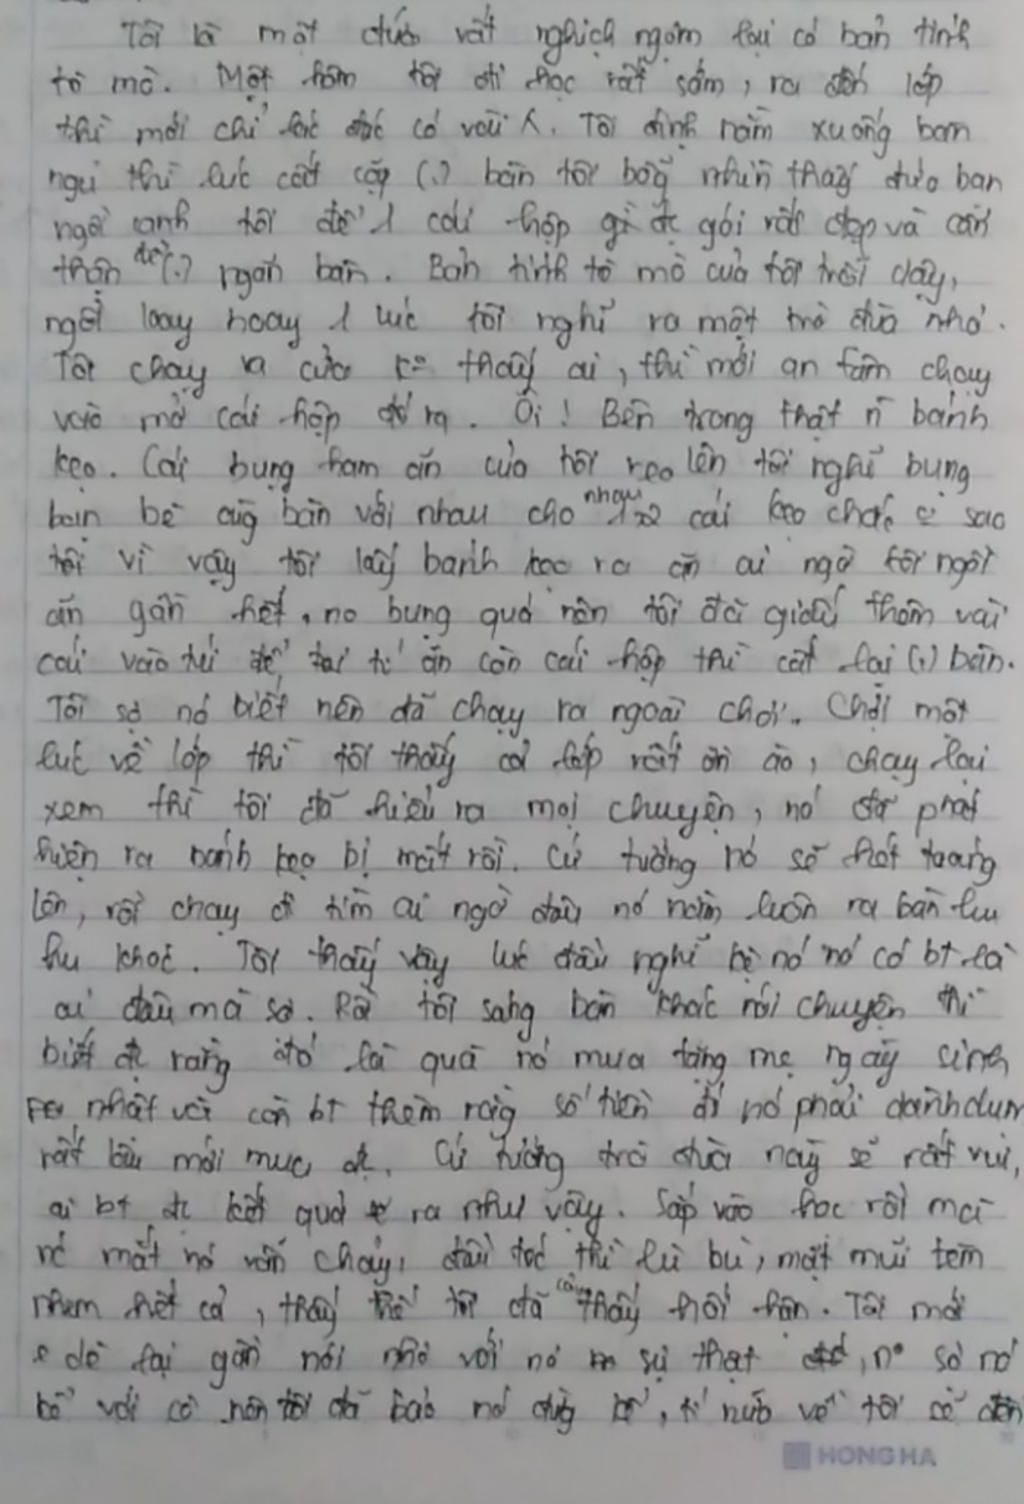 Tôi là một đứa vất nghịch ngợm lại có bản tính
tò mò. Một hôm tôi đi học rất sớm, ra đến lớp
thì mới chỉ lác đác có vài . Tôi định nằm xuống bàn
ngủ thì lúc cất cặp (.) bàn tôi bỗng nhìn thấy đứa bạn
ngồi cạnh tôi để 1 cái hộp gì đc gói rất đẹp và cẩn
thận để (.) ngăn bàn. Bản tính tò mò của tôi trỗi dậy,
ngồi loay hoay 1 lúc tôi nghĩ ra một trò đùa nhỏ.
Tôi chạy ra cửa ko thấy ai, thì mới an tâm chạy
vào mở cái hộp đó ra. Ôi! Bên trong thật n bánh
kẹo. Cái bụng ham ăn của tôi reo lên tôi nghĩ bụng
bạn bè cùng bàn với nhau cho nhau 1 2 cái kẹo chắc sao
tôi vì vậy tôi lấy bánh kẹo ra ăn ai ngờ tôi ngồi
ăn gần hết, no bụng quá nên tôi đã giấu thêm vài
cái vào túi để tẹi tí ăn còn cái hộp thì cất lại (.) bàn.
Tôi sợ nó biết nên đã chạy ra ngoài chơi. Chơi một
lúc về lớp thì tôi thấy cả lớp rất ồn ào, chạy lại
xem thì tôi đã hiểu ra mọi chuyện, nó đã phát
hiện ra bánh kẹo bị mất rồi. Cứ tưởng nó sẽ hét toáng
lên, rồi chạy đi tìm ai ngờ đâu nó nằm luôn ra bàn hu
hu khóc. Tôi thấy vậy lúc đầu nghĩ kệ nó nó có bt là
ai đâu mà sợ. Rồi tôi sang bàn khác nói chuyện thì
biết đc rằng đó là quà nó mua tặng mẹ ngày sinh
nhật và còn bt thêm rằng số tiền đó nó phải dành dụm
rất lâu mới mua đc. Cứ tưởng trò đùa này sẽ rất vui,
ai bt đc kết quả ra như vậy. Sắp vào học rồi mà
nc mắt nó vẫn chảy, đầu tóc thì lù bù, mặt mũi tèm
nhem hết cả, thấy thế tôi đã cảm thấy hối hận. Tôi mới
e dè lại gần nói nhỏ với nó sự thật, sợ nó
kể với cô nên tôi đã bảo nó đừng kể, tí nữa về tôi sẽ đền
HONG HA